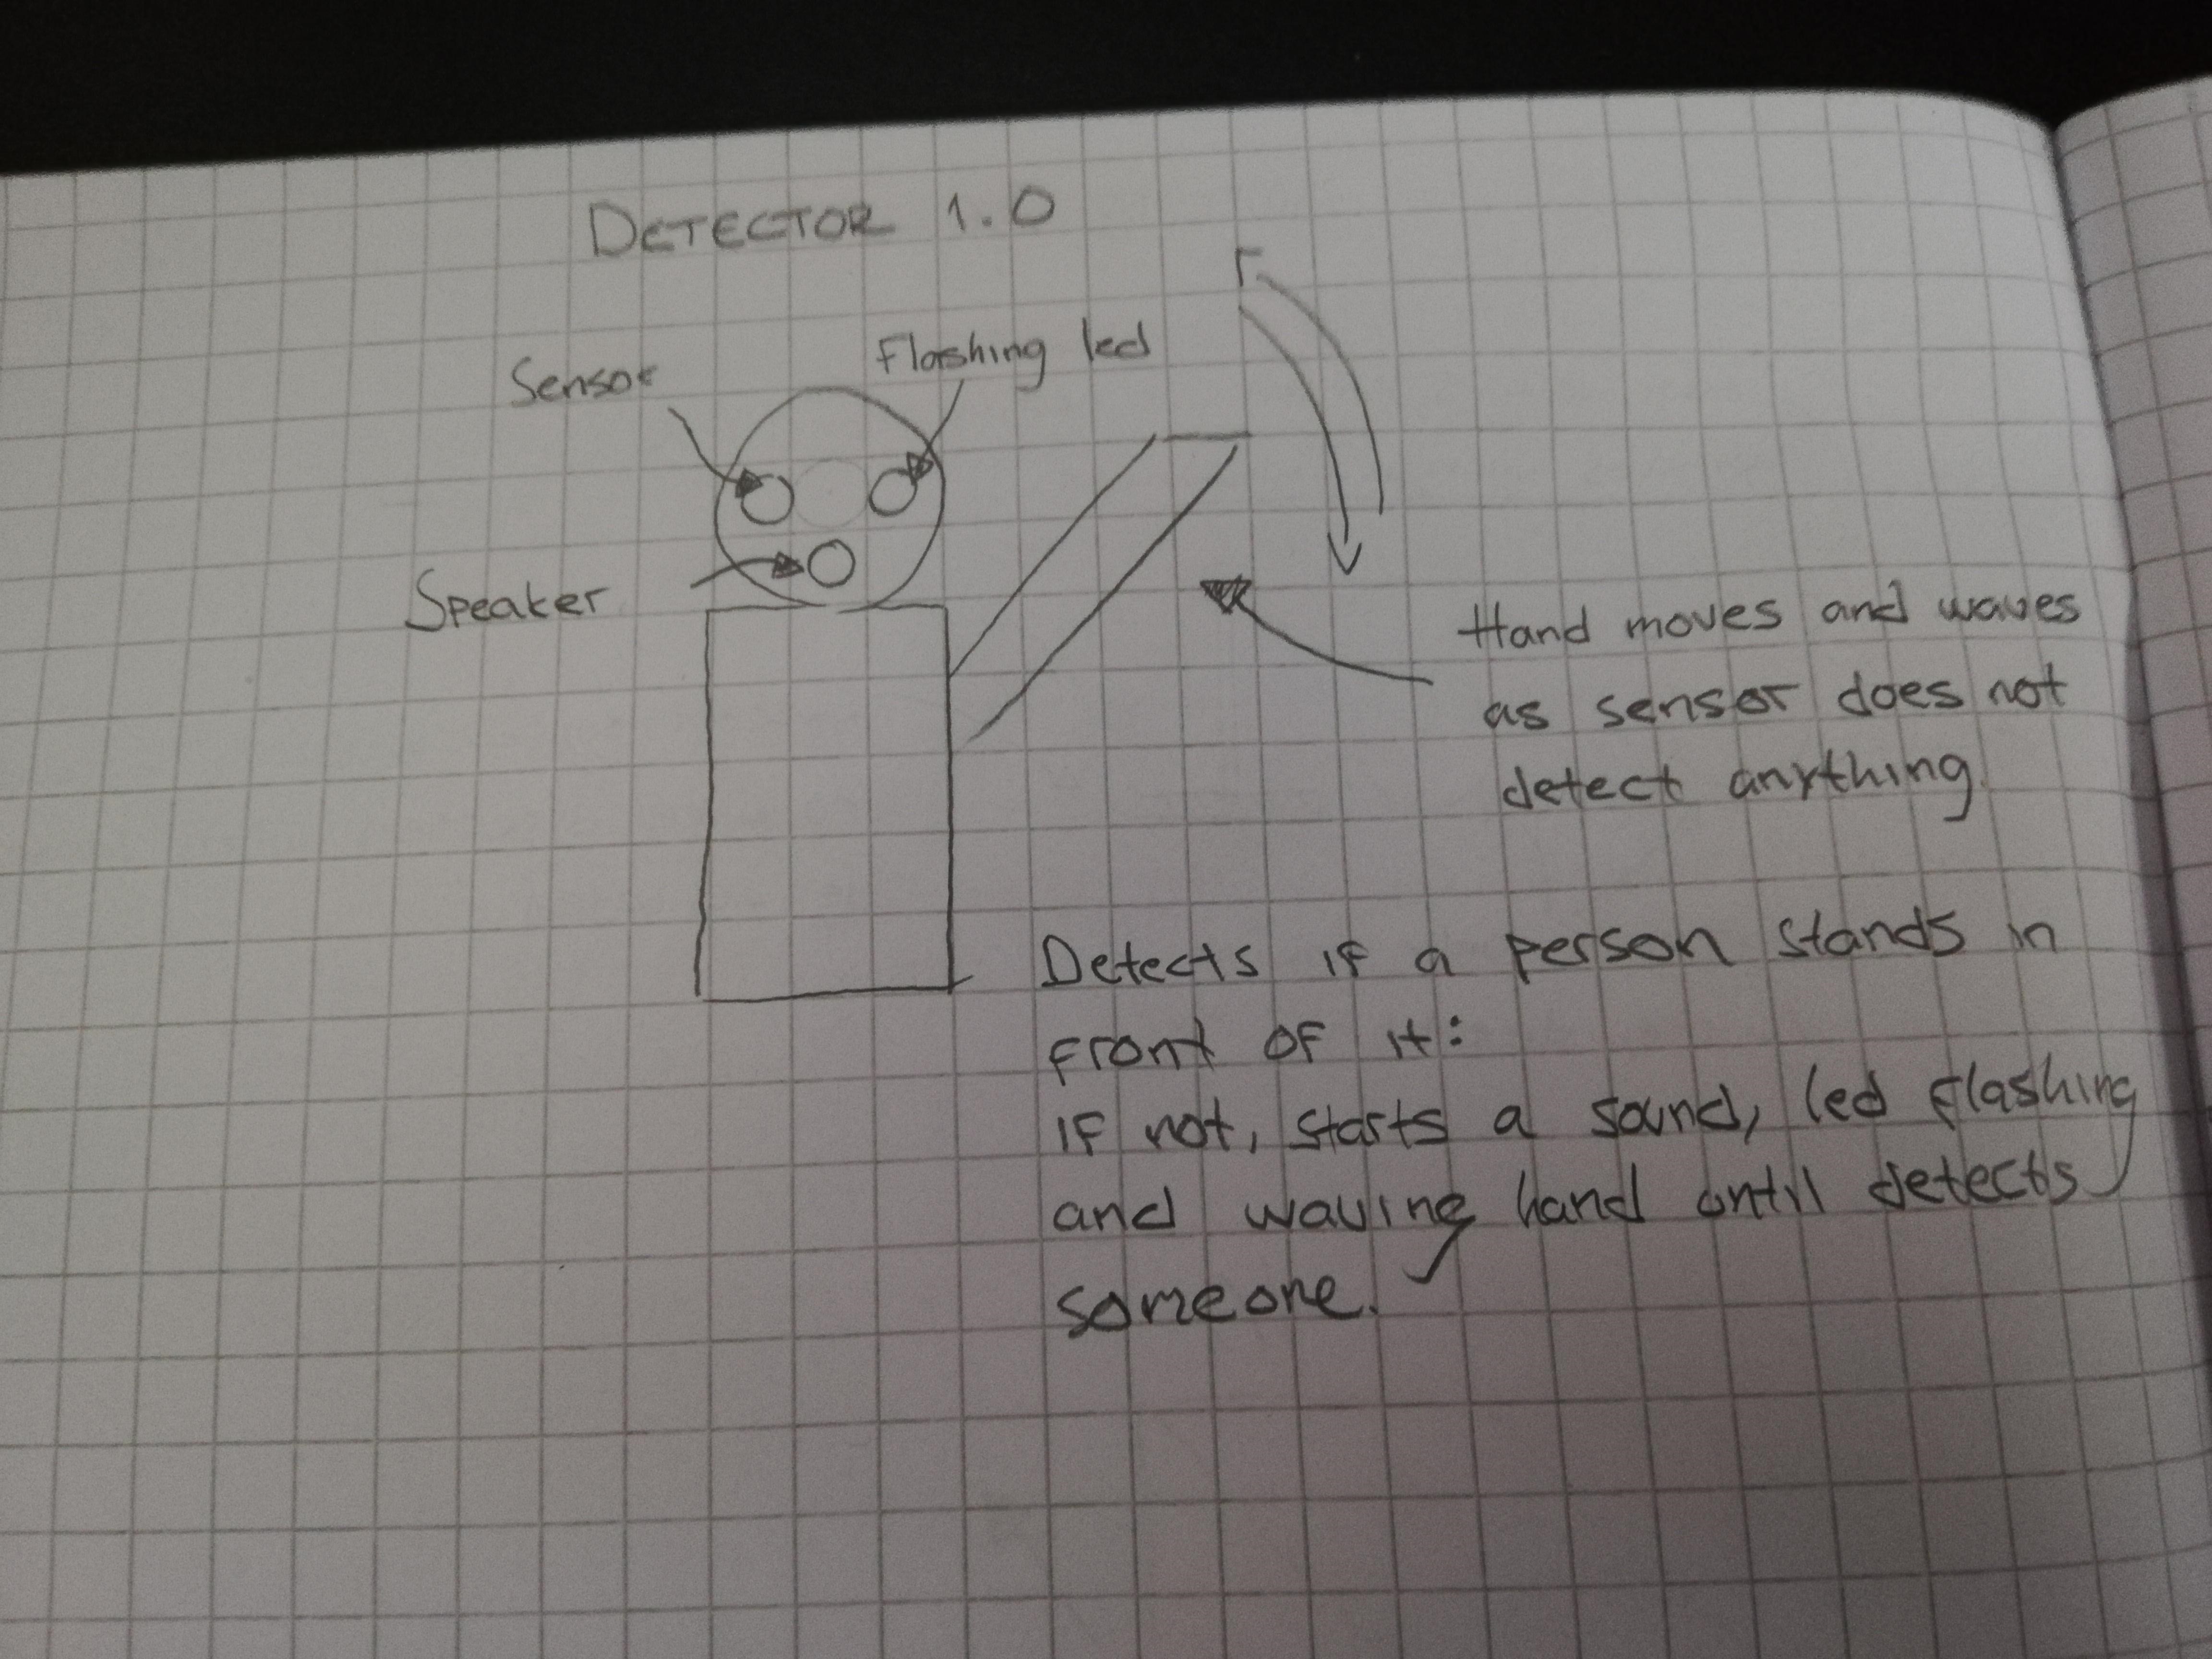 DETECTOR 1.0
Flashing led
Sensor
Speaker
Hand moves and waves
as sensor does not
detect anything.
Detects if a person stands in
front of it:
if not, starts a sound, led flashing
and waving hand until detects
someone.